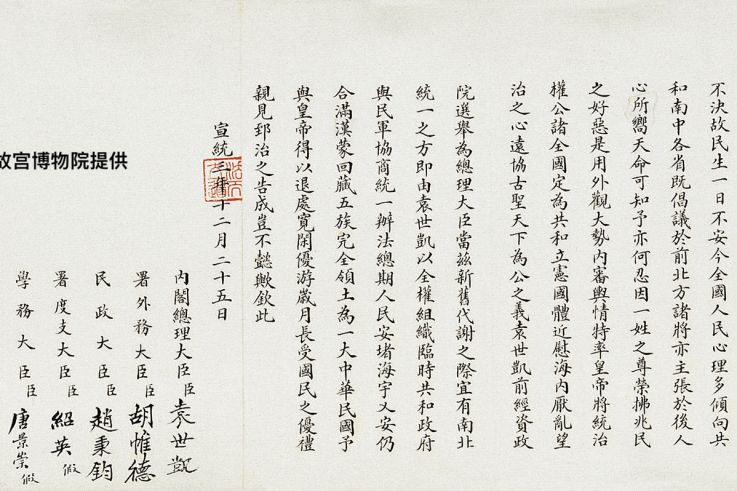 不決故民生一日不安今全國人民心理多傾向共
和南中各省既倡議於前北方諸將亦主張於後人
心所嚮天命可知予亦何忍因一姓之尊榮拂兆民
之好惡是用外觀大勢內審輿情特率皇帝將統治
權公諸全國定為共和立憲國體近慰海內厭亂望
治之心遠協古聖天下為公之義袁世凱前經資政
院選舉為總理大臣當茲新舊代謝之際宜有南北
統一之方即由袁世凱以全權組織臨時共和政府
與民軍協商統一辦法總期人民安堵海宇乂安仍
合滿漢蒙回藏五族完全領土為一大中華民國予
與皇帝得以退處寬閑優游歲月長受國民之優禮
親見郅治之告成豈不懿歟欽此
宣統三年十二月二十五日
內閣總理大臣臣袁世凱
署外務大臣臣胡惟德
民政大臣臣趙秉鈞
署度支大臣臣紹英假
學務大臣臣唐景崇假
故宮博物院提供